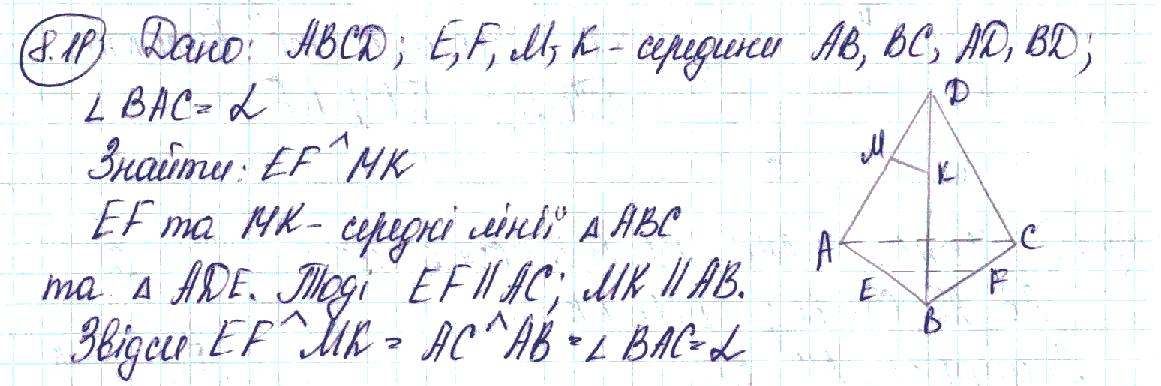 8.18) Дано: ABCD; E, F, M, K - середини AB, BC, AD, BD;
∠ BAC = α
Знайти: EF ^ MK
EF та MK - середні лінії △ ABC
та △ ADE. Тоді EF || AC; MK || AB.
Звідси EF ^ MK = AC ^ AB = ∠ BAC = α
D
M
K
A
C
E
F
B